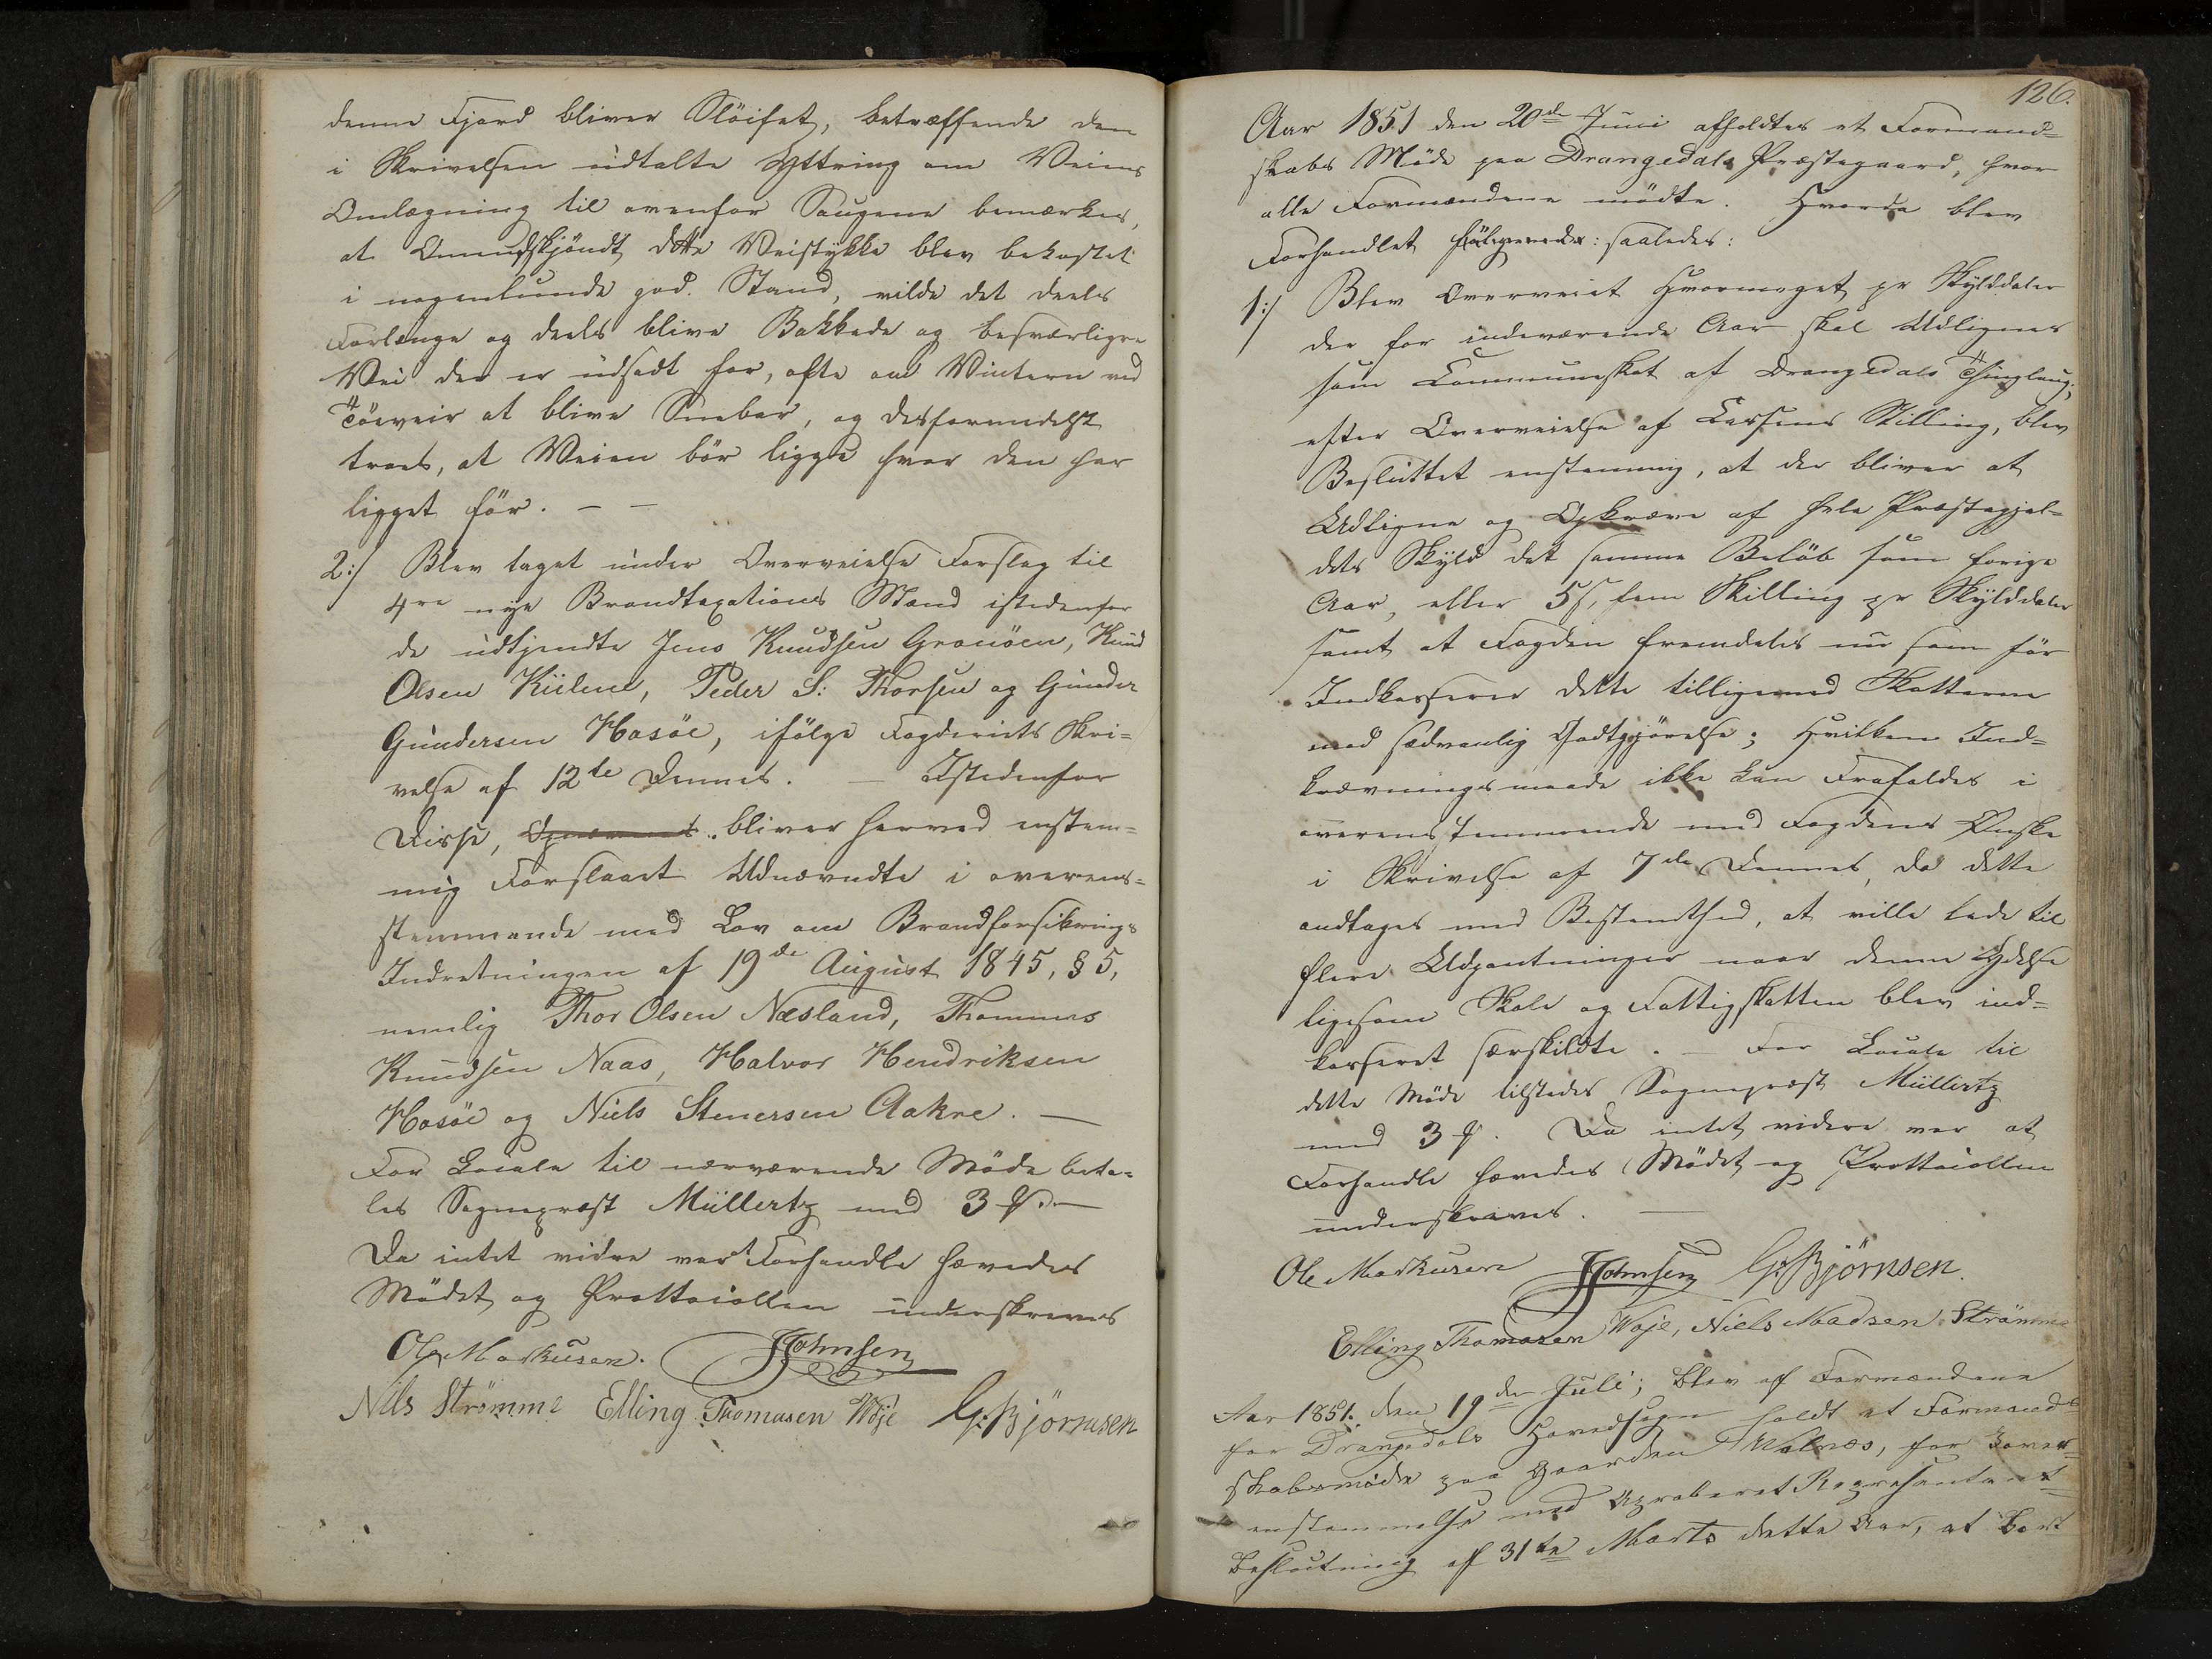 denne Fjord bliver Slöifet, betræffende den
i Skrivelsen udtalte Yttring om Veiens
Omlægning til ovenfor Saugene bemærkes,
at Omendskjöndt dette Veistykke blev bekostet
i nogenlunde god Stand, vilde det deels
Forlænge og deels blive Bakkede og besværligre
Vei der er udsadt for, ofte om Vintern ved
Töeveir at blive Snebar, og desformedelst
troes, at Veien bör ligge hvor den har
ligget för. — —
2:/ Blev taget under Overveielse Forslag til
4re nye Brandtaxations Mænd istedenfor
de udtjendte Jens Knudsen Gronöen, Knud
Olsen Kiilene, Peder S: Thorsen og Gunder
Gundersen Hosöe, ifölge Fogderiets Skri=
velse af 12te Dennes. — Istedenfor
Disse, bliver herved enstem=
mig Forslaaet Udnævndte i overens=
stemmende med Lov om Brandforsikrings
Indretningen af 19de August 1845, § 5,
nemlig Thor Olsen Næsland, Thommes
Knudsen Naas, Halvor Hendriksen
Hosöe og Niels Stenersen Aakre. —
For Locale til nærværende Möde beta=
les Sognepræst Müllertz med 3 —
Da intet vidre var at Forhandle hævedes
Mödet og Prottocollen underskreves
Ole Markusen. JJohnsen
Nils Strömme Elling Thomasen Woje G:Björnsen
126.
Aar 1851 den 20de Juni afholdtes et Formand=
skabs Möde paa Drangedals Præstegaard, hvor
alle Formændene mödte. Hvorda blev
Forhandlet fölgende: saaledes:
1:/ Blev Overveiet Hvormeget pr Skylddaler
der for indeværende Aar skal Udlignes
som Communeskat af Drangedals Thinglaug;
efter Overveielse af Cassens Stilling, blev
Besluttet enstemmig, at der bliver at
Udligne og Opkræve af hele Præstegjel=
dets Skyld det samme Belöb som forige
Aar, eller 5 s, fem Skilling pr Skylddaler
samt at Fogden fremdeles nu som för
Indkasserer dette tilligemed Skatterne
med sædvanlig Godtgjörelse; Hvilken Ind=
krævningsmaade ikke kan Frafaldes i
overenstemmende med Fogdens Ønske
i Skrivelse af 7de Dennes, da dette
andtages med Bestemthed, at ville lede til
flere Udpantninger naar denne Ydelse
ligesom Skole og Fattigskatten blev ind=
kasseret særskildte. — For Locale til
dette Möde tilstedes Sognepræst Müllertz
med 3. Da intet videre var at
Forhandle hævedes Mödet og Prottocollen
underskreves. —
Ole Markusen JJohnsen G:Björnsen.
Elling Thomasen Woje, Niels Madsen Strömme
Aar 1851. den 19de Juli; blev af Formændene
for Drangedals Hovedsogn holdt et Formand=
skabsmöde paa Gaarden Walnæs, for Over=
enstemmelse med Aproberet Representant=
beslutning af 31te Marts dette Aar, at bort